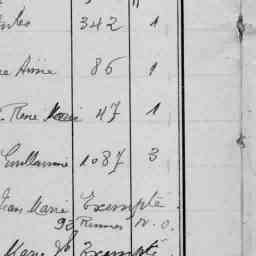 342 1
Aimé 86 1
René Marie 47 1
Guillaume 1087 3
Jean Marie Exempté
93 Rennes N. O.
Marie Exempté